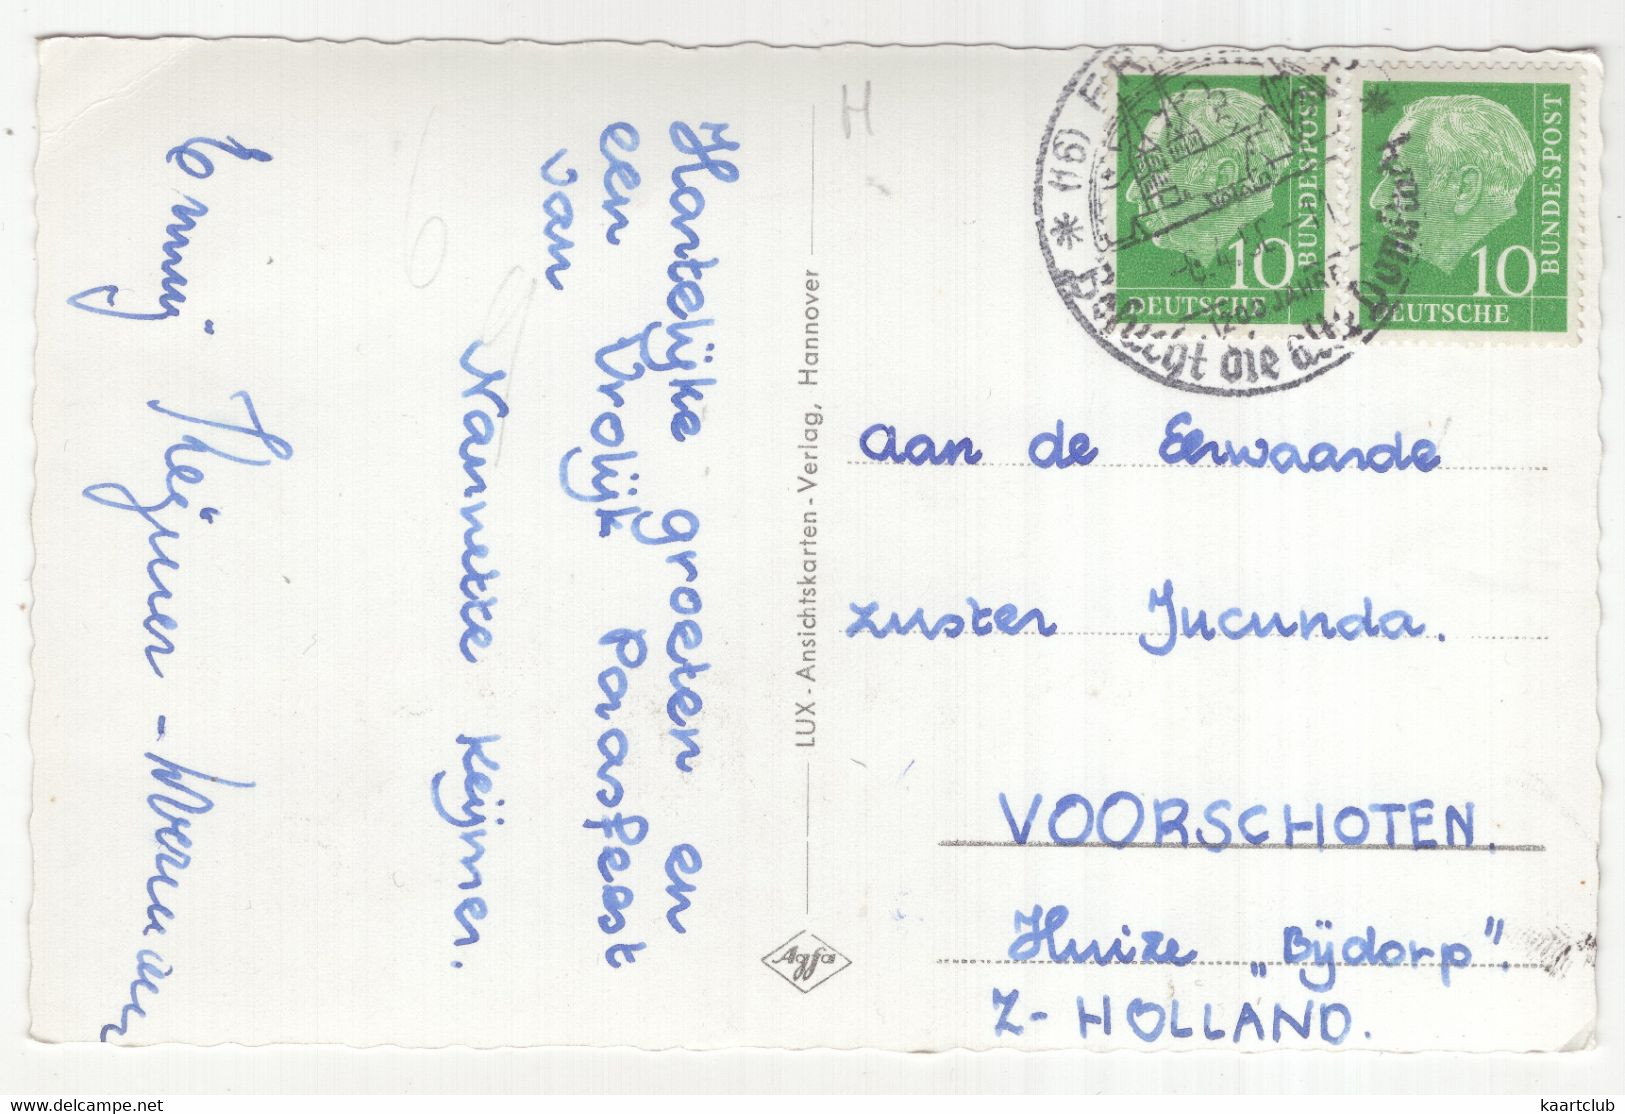 Hartelijke groeten en
een Vrolijk Paasfeest
van
Nannette Keijner.
Emmy Keijner -
H
LUX - Ansichtskarten - Verlag, Hannover
Agfa
(16)
Besucht die alte Domstadt
1200 JAHRE
10
BUNDESPOST
DEUTSCHE
10
BUNDESPOST
DEUTSCHE
aan de Eerwaarde
zuster Jucunda.
VOORSCHOTEN.
Huize „Bijdorp".
Z-HOLLAND.
kaartclub